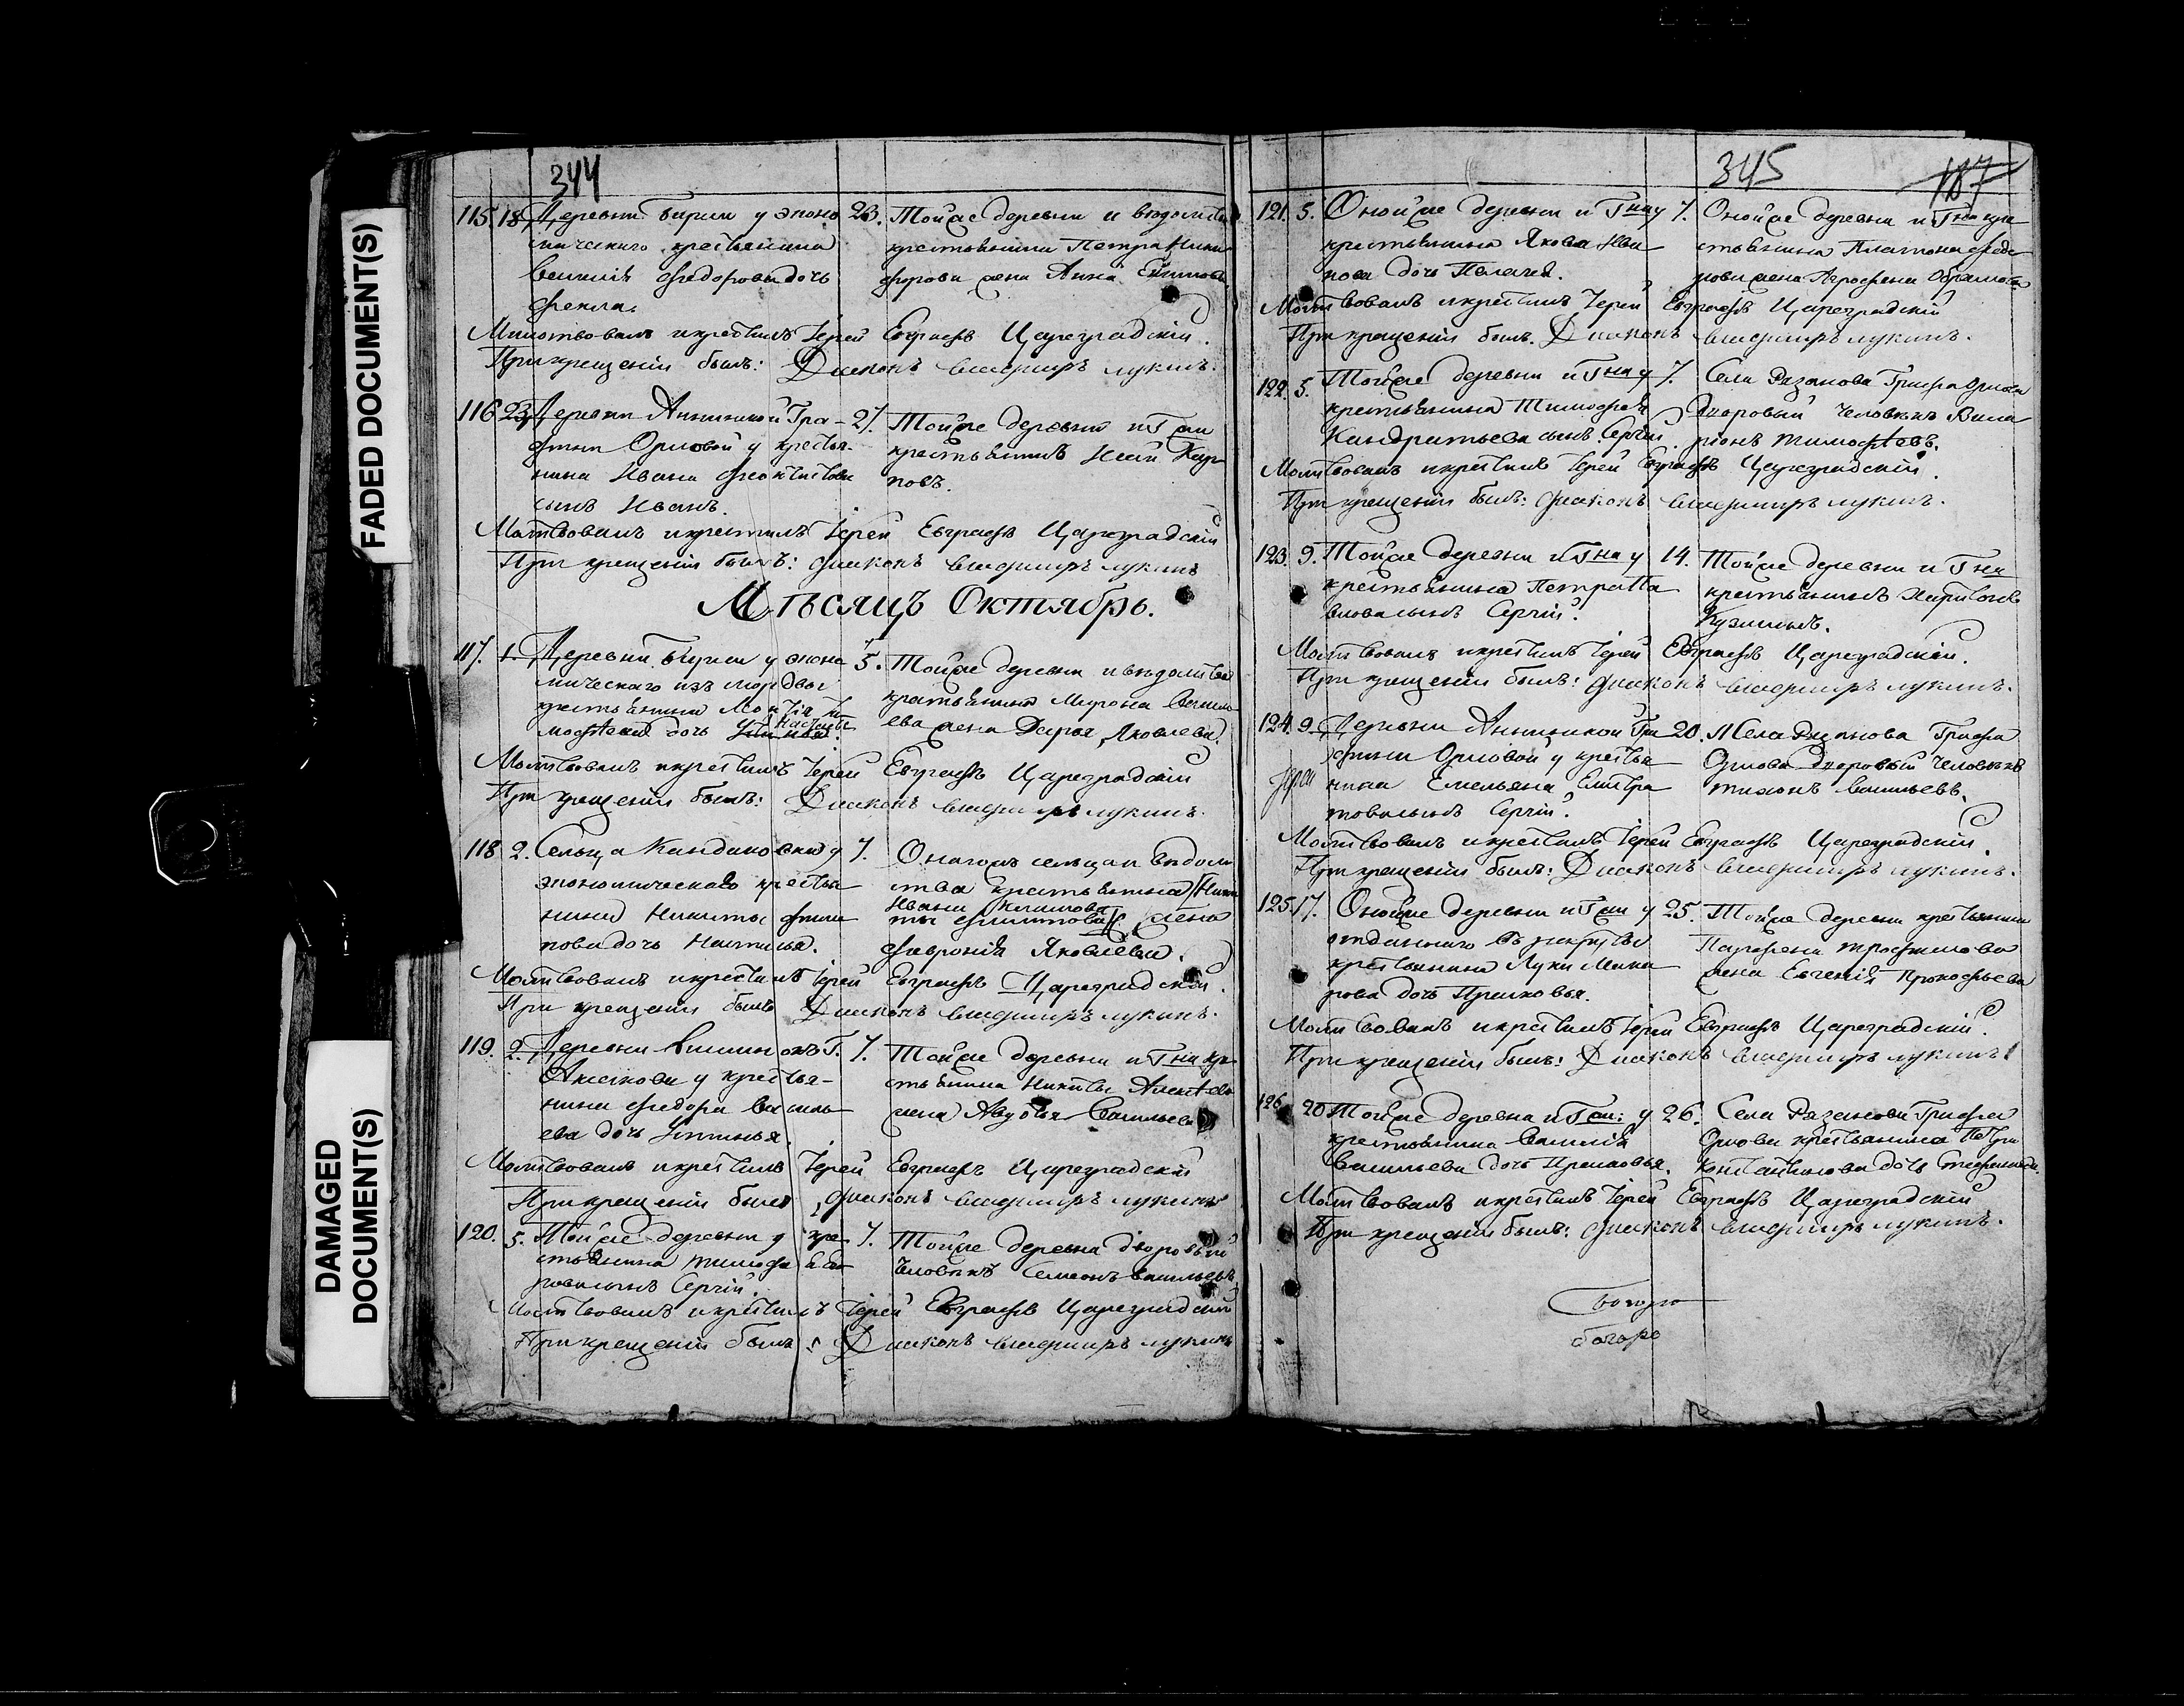 FADED DOCUMENT(S)
DAMAGED
DOCUMENT(S)
344
115. 18. Деревни Бирли у эконо
мическаго крестьянина
Василія Федорова дочь
Фекла.
23. Тойже деревни и ведомства
крестьянина Петра Ники
форова жена Анна
Молитвовалъ и крестилъ Іерей Евграфъ Цареградскій.
При крещеніи былъ: Діаконъ Владимиръ Лукинъ.
116. 23. Деревни Аннинской Гра-
фини Орловой у крестья-
нина Ивана Феоктистова
сынъ Иванъ.
27. Тойже деревни и Гжи
крестьянинъ Исай Кар
повъ.
Молитвовалъ и крестилъ Іерей Евграфъ Цареградскій
При крещеніи былъ: Діаконъ Владимиръ Лукинъ
Мѣсяцъ Октябрь.
117. 1. Деревни Бирли у эконо
мическаго изъ мордвы
крестьянина
мофеева дочь
5. Тойже деревни и ведомства
крестьянина Мирона Василь
ева жена Дарья Яковлева.
Молитвовалъ и крестилъ Іерей Евграфъ Цареградскій
При крещеніи былъ: Діаконъ Владимиръ Лукинъ.
118. 2. Сельца Кандаковки у
экономическаго крестья
нина Никиты Филип
пова дочь Настасья.
7. Онагожъ сельца и ведом
ства крестьянина
Ивана Климова
жена
Февронія Яковлева.
Молитвовалъ и крестилъ Іерей Евграфъ Цареградскій.
При крещеніи былъ Діаконъ Владимиръ Лукинъ.
119. 2. Деревни Вишенокъ Г.
Аксакова у крестья-
нина Федора Василь
ева дочь Устинья.
7. Тойже деревни и Гна кре
стьянина Никиты Алексѣева
жена Авдотья Васильева
Молитвовалъ и крестилъ Іерей Евграфъ Цареградскій
При крещеніи былъ Діаконъ Владимиръ Лукинъ
120. 5. Тойже деревни у кре
стьянина
сынъ Сергій.
7. Тойже деревни дворовый
человѣкъ Семенъ Васильевъ
Молитвовалъ и крестилъ Іерей Евграфъ Цареградскій
При крещеніи былъ: Діаконъ Владимиръ Лукинъ
345
187
121. 5. Онойже деревни и Гна у
крестьянина Якова Ива
нова дочь Пелагея.
7. Онойже деревни и Гна кре
стьянина Платона Федо
рова жена
Молитвовалъ и крестилъ Іерей Евграфъ Цареградскій
При крещеніи былъ. Діаконъ Владимиръ Лукинъ.
122. 5. Тойже деревни и Гна у
крестьянина Тимофея
Кандратьева сынъ Сергій.
7. Села Рязанова Графа Орлова
Дворовый человѣкъ Вила
ріонъ Тимофѣевъ.
Молитвовалъ и крестилъ Іерей Евграфъ Цареградскій.
При крещеніи былъ: Діаконъ Владимиръ Лукинъ.
123. 9. Тойже деревни и Гна у
крестьянина Петра Па
влова сынъ Сергій.
14. Тойже деревни и Гна
крестьянинъ Харитонъ
Кузминъ.
Молитвовалъ и крестилъ Іерей Евграфъ Цареградскій.
При крещеніи былъ: Діаконъ Владимиръ Лукинъ.
124. 9. Деревни Аннинской Гра
фини Орловой у крестья
нина Емельяна Емитра
това сынъ Сергій.
20. Села Рязанова Графа
Орлова Дворовый человѣкъ
Тихонъ Васильевъ.
Молитвовалъ и крестилъ Іерей Евграфъ Цареградскій.
При крещеніи былъ: Діаконъ Владимиръ Лукинъ.
125. 17. Онойже деревни и Гжи у
отданнаго въ рекруты
крестьянина Луки Мака
рова дочь Прасковья.
25. Тойже деревни крестьянина
Парфена Трофимова
жена Евгенія Прокофьева
Молитвовалъ и крестилъ Іерей Евграфъ Цареградскій.
При крещеніи былъ: Діаконъ Владимиръ Лукинъ.
126. 20. Тойже деревни и Гжи: у
крестьянина Василія
Васильева дочь Прасковья.
26. Села Рязанова Графа
Орлова крестьянина Петра
Константинова дочь
Молитвовалъ и крестилъ Іерей Евграфъ Цареградскій
При крещеніи былъ: Діаконъ Владимиръ Лукинъ.